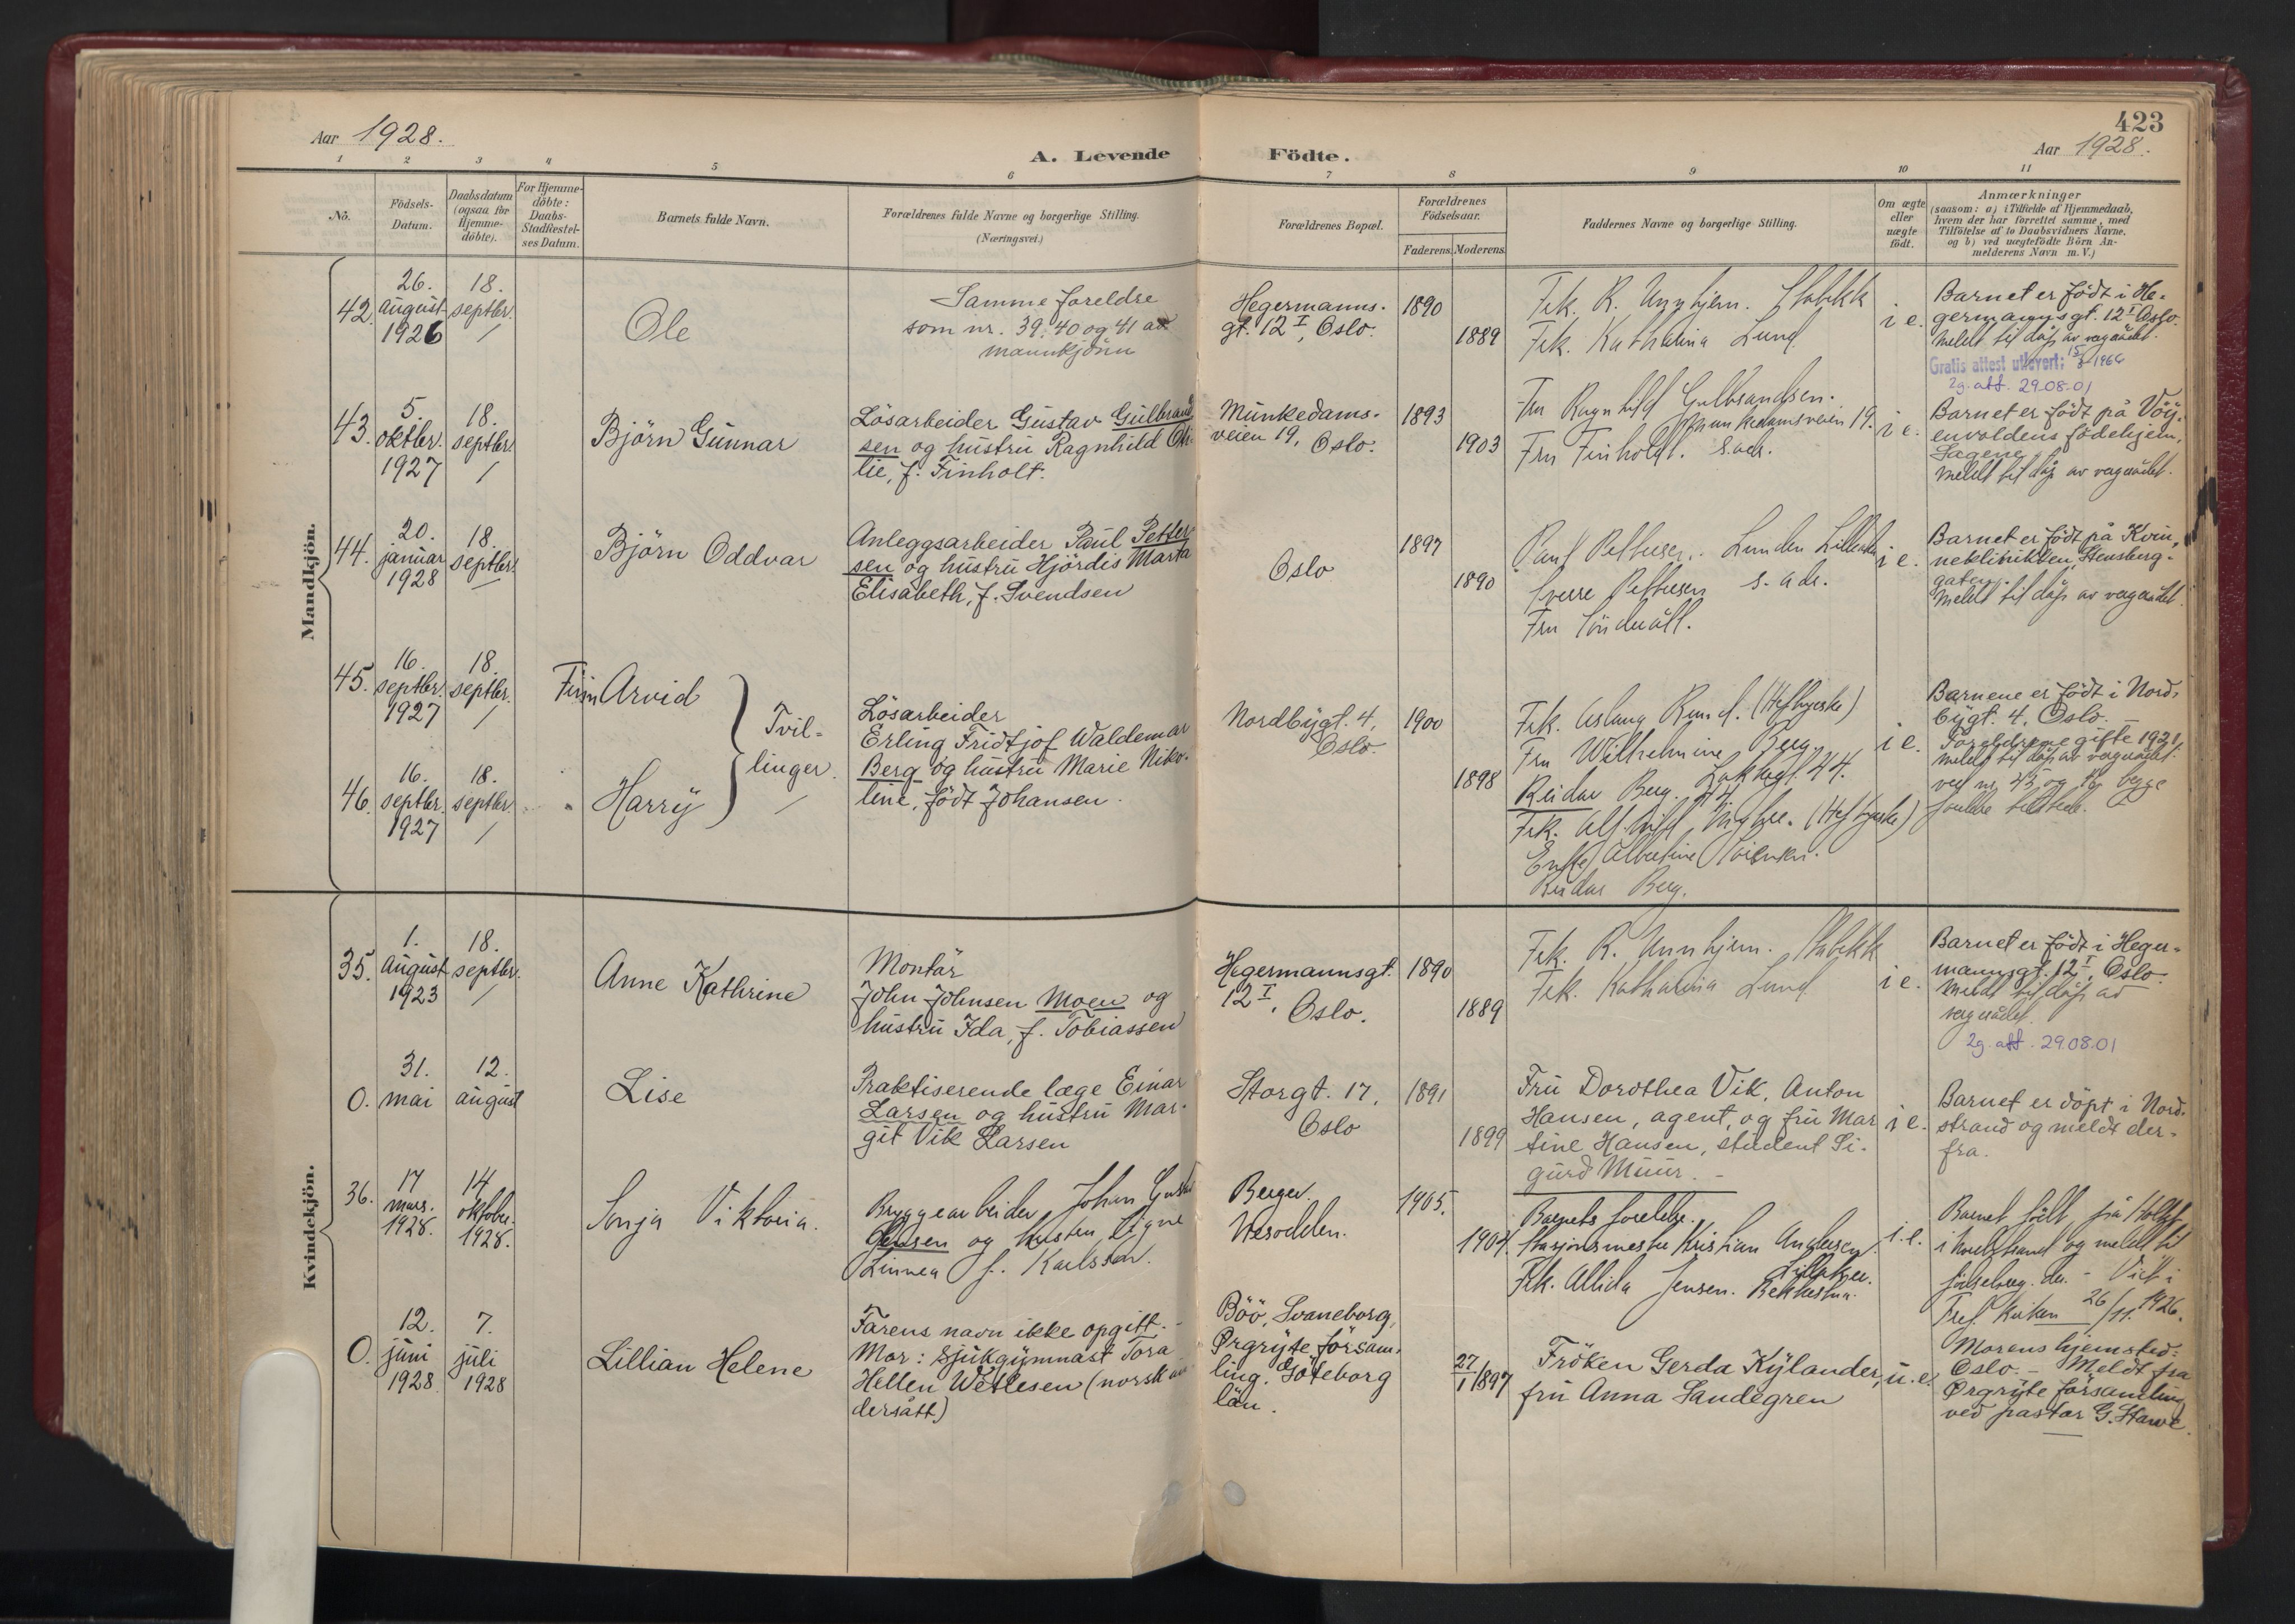 423
Aar 1928.
A. Levende Födte.
Aar 1928.
1 2 3 4 5 6 7 8 9 10 11
No.
Födsels-
Datum.
Daabsdatum
(ogsaa for
Hjemme-
döbte).
For Hjemme-
döbte:
Daabs-
Stadfæstel-
ses Datum.
Barnets fulde Navn.
Forældrenes fulde Navne og borgerlige Stilling.
(Næringsvei.)
Forældrenes Bopæl.
Forældrenes
Födselsaar.
Faderens. Moderens.
Faddernes Navne og borgerlige Stilling.
Om ægte
eller
uægte
födt.
Anmærkninger
(saasom: a) i Tilfælde af Hjemmedaab,
hvem der har forrettet samme, med
Tilföielse af to Daabsvidners Navne.
og b) ved uægtefödte Börn An-
melderens Navn m. V.)
Mandkjön.
42.
26.
august
1926
18.
septbr.
Ole
Samme foreldre
som nr. 39, 40 og 41 av
mannkjönn
Hegermanns-
gt. 12 I, Oslo.
1890
1889
Frk. R. Unnhjem. Stabekk
Frk. Kathalina Lund
i e.
Barnet er födt i He-
germannsgt. 12 I Oslo.
Meldt til dåp av vergerådet.
Gratis attest utlevert: 1966
2g. att. 29.08.01
43.
5.
oktbr.
1927
18.
septbr.
Björn Gunnar
Lösarbeider Gustav Gulbrand
sen og hustru Ragnhild Oti-
lie, f. Finholt.
Munkedams-
veien 19, Oslo.
1893
1903
Fru Ragnhild Gulbrandsen.
Munkedamsveien 19.
Fru Finholdt. s. adr.
i e.
Barnet er födt på Vöy-
envoldens födehjem,
Sagene
Meldt til dåp av vergerådet.
44.
20.
januar
1928
18.
septbr.
Björn Oddvar
Anleggsarbeider Paul Petter
sen og hustru Hjördis Marta
Elisabeth, f. Svendsen
Oslo
1897
1890
Paul Pettersen. Lunden
Sverre Pettersen s. adr.
Fru
i e.
Barnet er födt på Kvin-
neklinikken, Stensberg-
gaten.
Meldt til dåp av vergerådet.
45.
16.
septbr.
1927
18.
septbr.
Finn Arvid
Tvil-
linger.
46.
16.
septbr.
1927
18.
septbr.
Harry
Lösarbeider
Erling Fridtjof Waldemar
Berg og hustru Marie Niko-
line, födt Johansen.
Nordbygt. 4,
Oslo.
1900
1898
Frk. Aslaug Rund. (Heftyeske)
Fru Wilhelmine Berg.
Reidar Berg. Lakkegt. 44.
Frk. (Heftyeske)
Enke Albertine
Reidar Berg.
i e.
Barnene er födt i Nord-
bygt. 4, Oslo. –
Foreldrene gifte 1921
Meldt til dåp av vergerådet.
ved nr. 45 og 46 begge
foreldre tilstede.
Kvindekjön.
35.
1.
august
1923
18.
septbr.
Anne Kathrine
Montär
John Johnsen Moen og
hustru Ida, f. Tobiassen
Hegermannsgt.
12 I, Oslo.
1890
1889
Frk. R. Unnhjem. Stabekk
Frk. Kathalina Lund
i e.
Barnet er födt i Heger-
mannsgt. 12 I, Oslo.
Meldt til dåp av
vergerådet.
2g. att. 29.08.01
0.
31.
mai
12.
august
Lise
Praktiserende læge Einar
Larsen og hustru Mar-
git Vik Larsen
Storgt. 17,
Oslo
1891
1899
Fru Dorothea Vik, Anton
Hansen, agent, og fru Mar
tine Hansen, student Si-
gurd Muur. –
i e.
Barnet er döpt i Nord-
strand og meldt der-
fra.
36.
17
mars.
1928.
14
oktober.
1928.
Sonja Viktoria.
Bryggearbeider Johan
Jensen og hustru Signe
Linnea f. Karlsson.
Berger.
Nesodden.
1905.
1904.
Barnets foreldre.
Stasjonsmester Kristian Andersen.
Lilleaker.
Frk. Allida Jensen. Bekkestua.
i. e.
Barnet födt på
i og meldt til
der. – Viet i
Tref. kirken 26/11 1926.
0.
12.
juni
1928
7.
juli
1928
Lillian Helene
Farens navn ikke opgitt. –
Mor: Sjukgymnast Tora
Hellen Wetlesen (norsk un
dersått)
Böö, Svaneborg,
Örgryte försam-
ling. Göteborg
län.
27/1 1897
Fröken Gerda Kylander,
fru Anna Sandegren
u. e.
Morens hjemsted:
Oslo – Meldt fra
Örgryte församling
ved pastor G. Hawe.